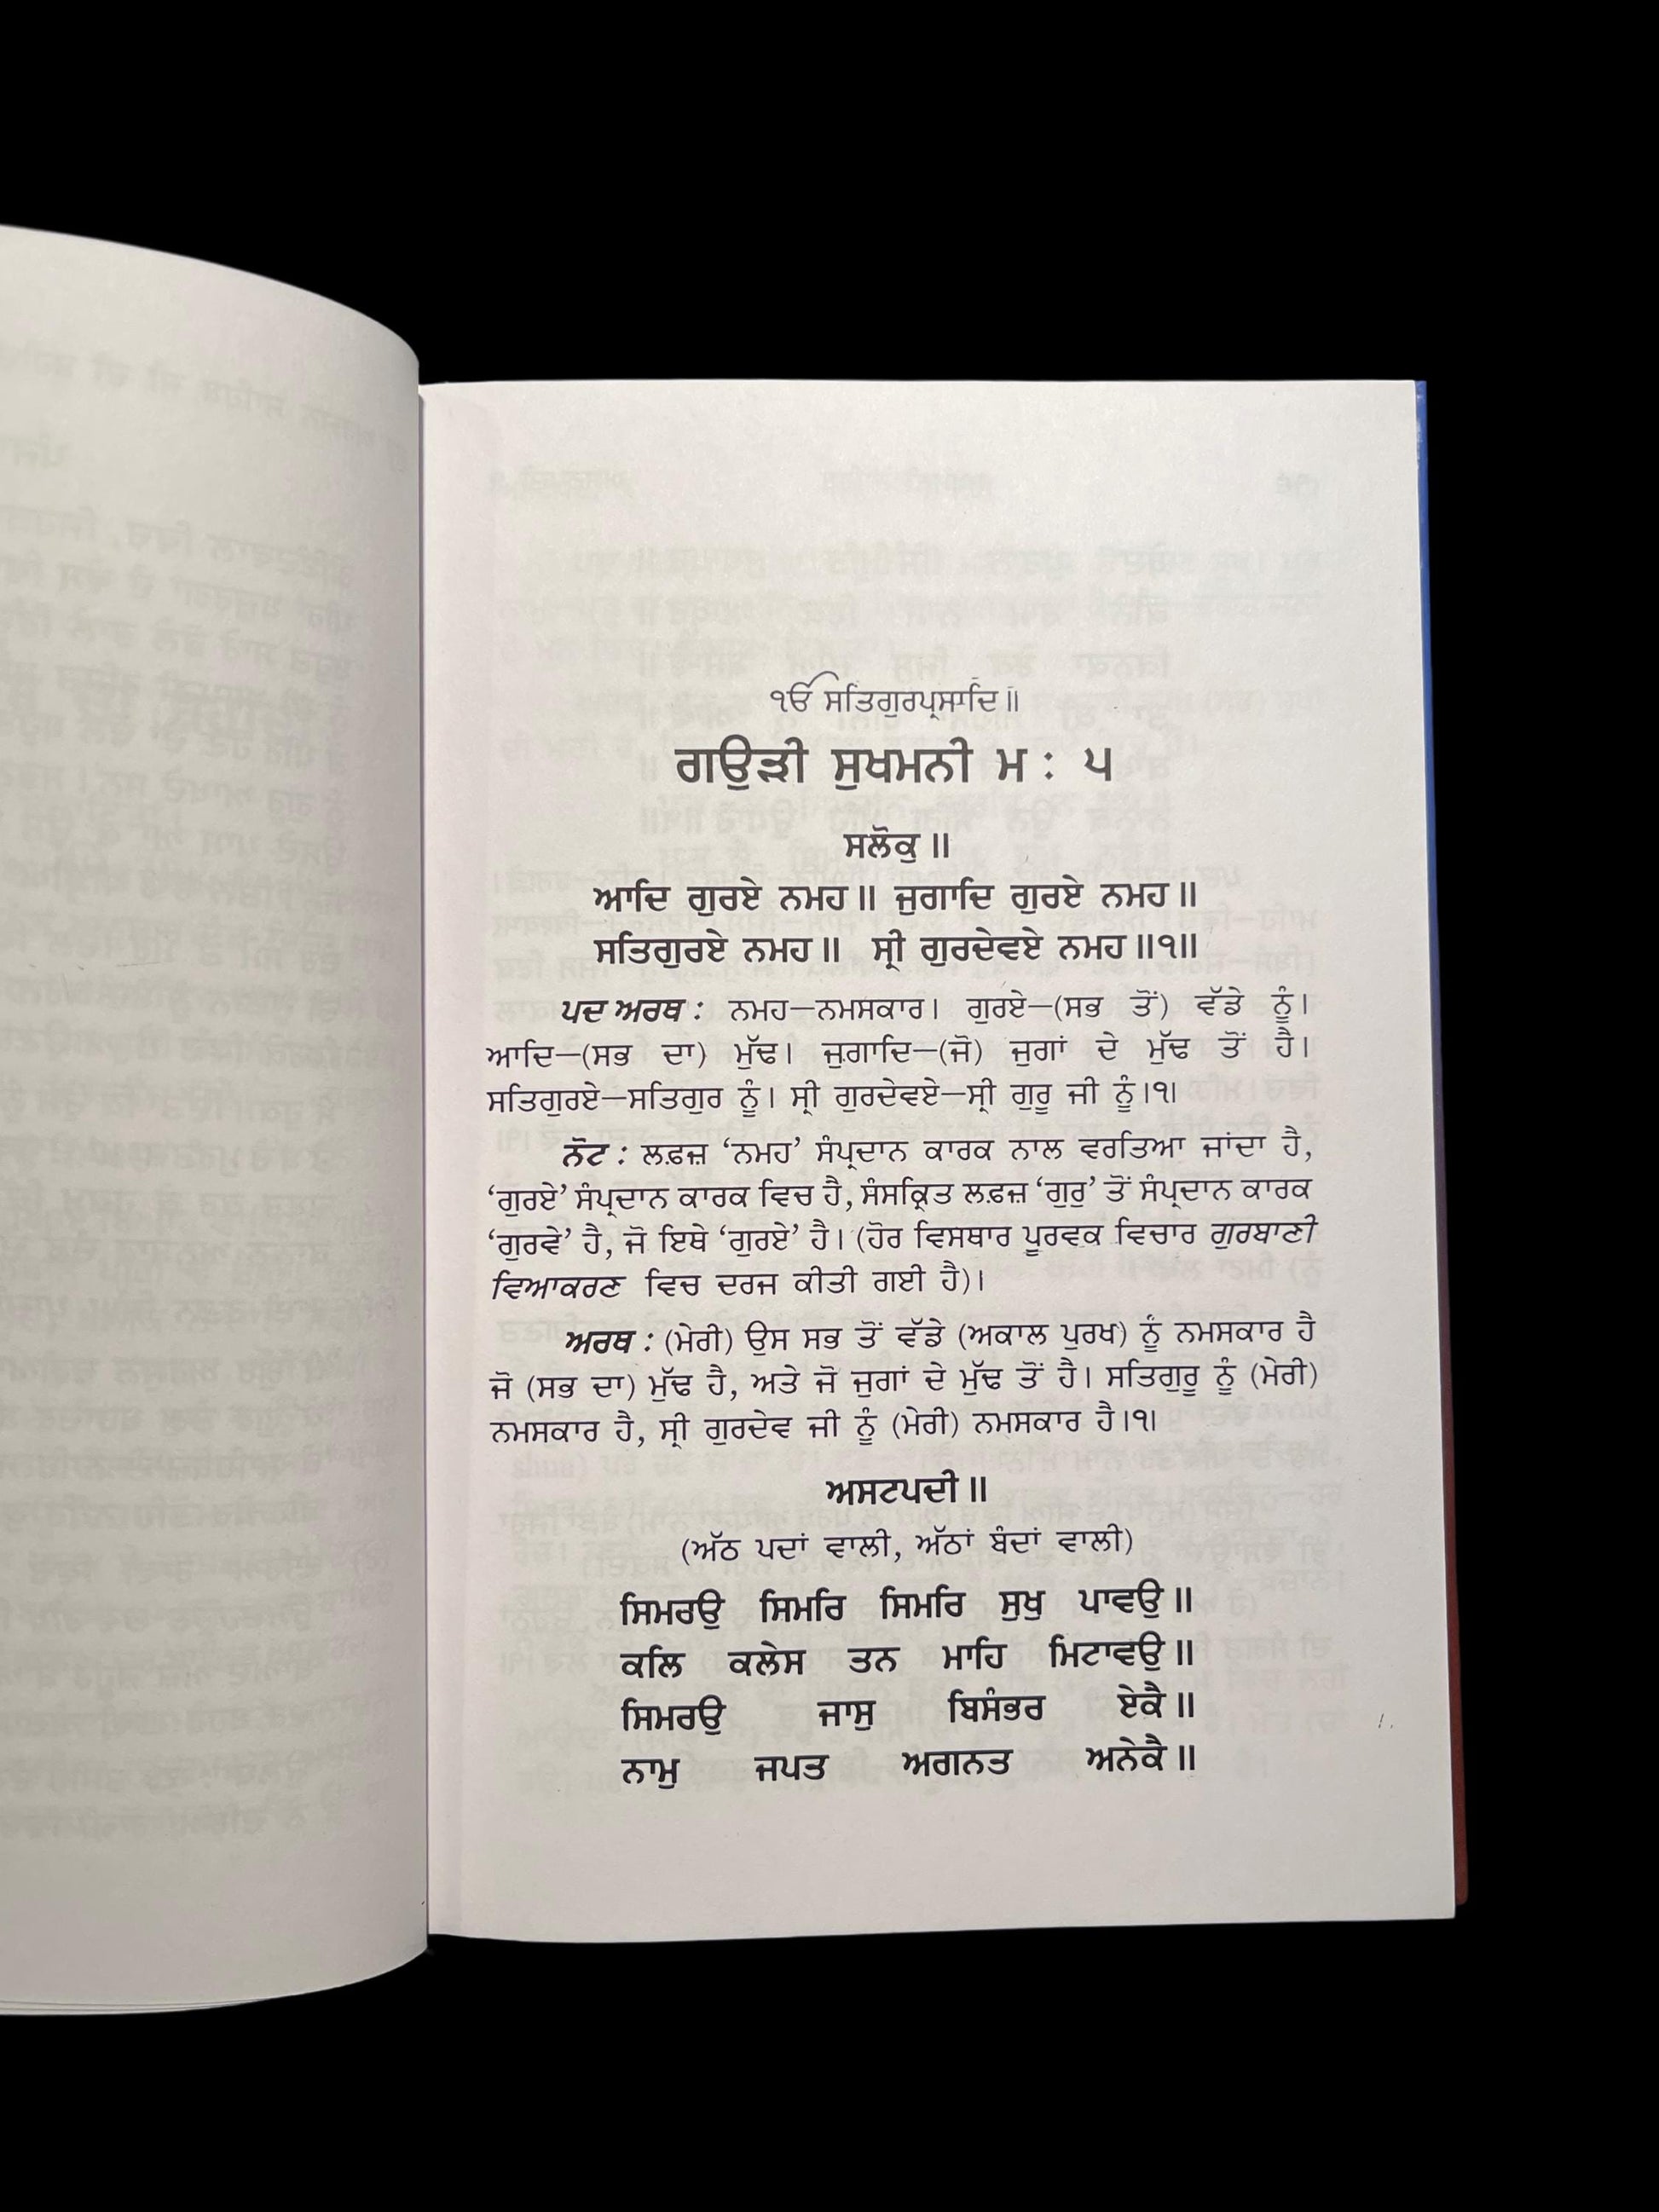 ੴ ਸਤਿਗੁਰਪ੍ਰਸਾਦਿ॥
ਗਉੜੀ ਸੁਖਮਨੀ ਮ : ੫
ਸਲੋਕੁ॥
ਆਦਿ ਗੁਰਏ ਨਮਹ॥ ਜੁਗਾਦਿ ਗੁਰਏ ਨਮਹ॥
ਸਤਿਗੁਰਏ ਨਮਹ॥ ਸ੍ਰੀ ਗੁਰਦੇਵਏ ਨਮਹ॥੧॥
ਪਦ ਅਰਥ : ਨਮਹ—ਨਮਸਕਾਰ। ਗੁਰਏ—(ਸਭ ਤੋਂ) ਵੱਡੇ ਨੂੰ।
ਆਦਿ—(ਸਭ ਦਾ) ਮੁੱਢ। ਜੁਗਾਦਿ—(ਜੋ) ਜੁਗਾਂ ਦੇ ਮੁੱਢ ਤੋਂ ਹੈ।
ਸਤਿਗੁਰਏ—ਸਤਿਗੁਰ ਨੂੰ। ਸ੍ਰੀ ਗੁਰਦੇਵਏ—ਸ੍ਰੀ ਗੁਰੂ ਜੀ ਨੂੰ।੧।
ਨੋਟ : ਲਫ਼ਜ਼ ‘ਨਮਹ’ ਸੰਪ੍ਰਦਾਨ ਕਾਰਕ ਨਾਲ ਵਰਤਿਆ ਜਾਂਦਾ ਹੈ,
‘ਗੁਰਏ’ ਸੰਪ੍ਰਦਾਨ ਕਾਰਕ ਵਿਚ ਹੈ, ਸੰਸਕ੍ਰਿਤ ਲਫ਼ਜ਼ ‘ਗੁਰੁ’ ਤੋਂ ਸੰਪ੍ਰਦਾਨ ਕਾਰਕ
‘ਗੁਰਵੇ’ ਹੈ, ਜੋ ਇਥੇ ‘ਗੁਰਏ’ ਹੈ। (ਹੋਰ ਵਿਸਥਾਰ ਪੂਰਵਕ ਵਿਚਾਰ ਗੁਰਬਾਣੀ
ਵਿਆਕਰਣ ਵਿਚ ਦਰਜ ਕੀਤੀ ਗਈ ਹੈ)।
ਅਰਥ : (ਮੇਰੀ) ਉਸ ਸਭ ਤੋਂ ਵੱਡੇ (ਅਕਾਲ ਪੁਰਖ) ਨੂੰ ਨਮਸਕਾਰ ਹੈ
ਜੋ (ਸਭ ਦਾ) ਮੁੱਢ ਹੈ, ਅਤੇ ਜੋ ਜੁਗਾਂ ਦੇ ਮੁੱਢ ਤੋਂ ਹੈ। ਸਤਿਗੁਰੂ ਨੂੰ (ਮੇਰੀ)
ਨਮਸਕਾਰ ਹੈ, ਸ੍ਰੀ ਗੁਰਦੇਵ ਜੀ ਨੂੰ (ਮੇਰੀ) ਨਮਸਕਾਰ ਹੈ।੧।
ਅਸਟਪਦੀ॥
(ਅੱਠ ਪਦਾਂ ਵਾਲੀ, ਅੱਠਾਂ ਬੰਦਾਂ ਵਾਲੀ)
ਸਿਮਰਉ ਸਿਮਰਿ ਸਿਮਰਿ ਸੁਖੁ ਪਾਵਉ॥
ਕਲਿ ਕਲੇਸ ਤਨ ਮਾਹਿ ਮਿਟਾਵਉ॥
ਸਿਮਰਉ ਜਾਸੁ ਬਿਸੰਭਰ ਏਕੈ॥
ਨਾਮੁ ਜਪਤ ਅਗਨਤ ਅਨੇਕੈ॥